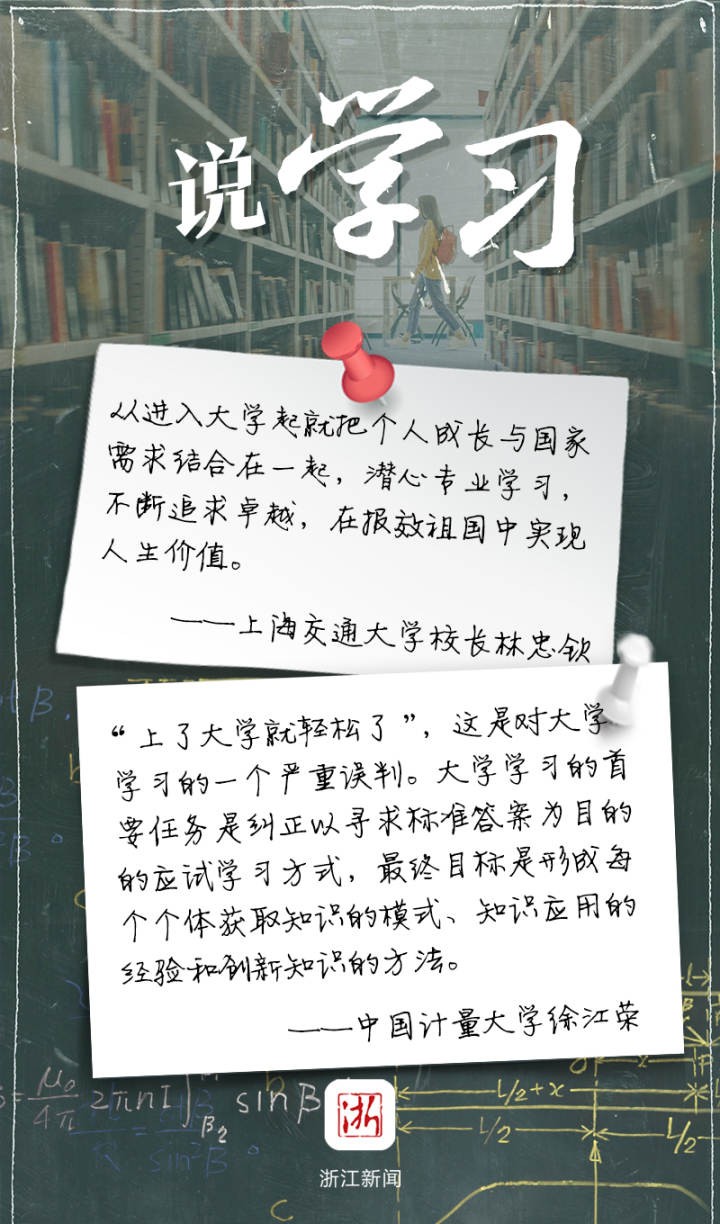 说学习
从进入大学起就把个人成长与国家
需求结合在一起，潜心专业学习，
不断追求卓越，在报效祖国中实现
人生价值。
——上海交通大学校长林忠钦
“上了大学就轻松了”，这是对大学
学习的一个严重误判。大学学习的首
要任务是纠正以寻求标准答案为目的
的应试学习方式，最终目标是形成每
个个体获取知识的模式、知识应用的
经验和创新知识的方法。
——中国计量大学徐江荣
μ₀/4π 2πnI∫β₂ sinβ
sin²β
L/2+x
L/2
L/2
浙
浙江新闻